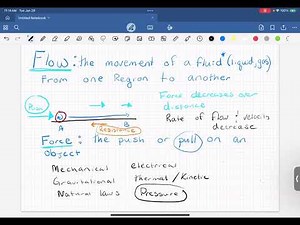 Untitled Notebook
Flow: the movement of a fluid (liquid, gas)
from one Region to another
Force decreases over
distance
A
B
Resistance
Rate of flow & velocity
decrease
Force: the push or pull on an
object
Mechanical electrical
Gravitational thermal/Kinetic
Natural laws Pressure